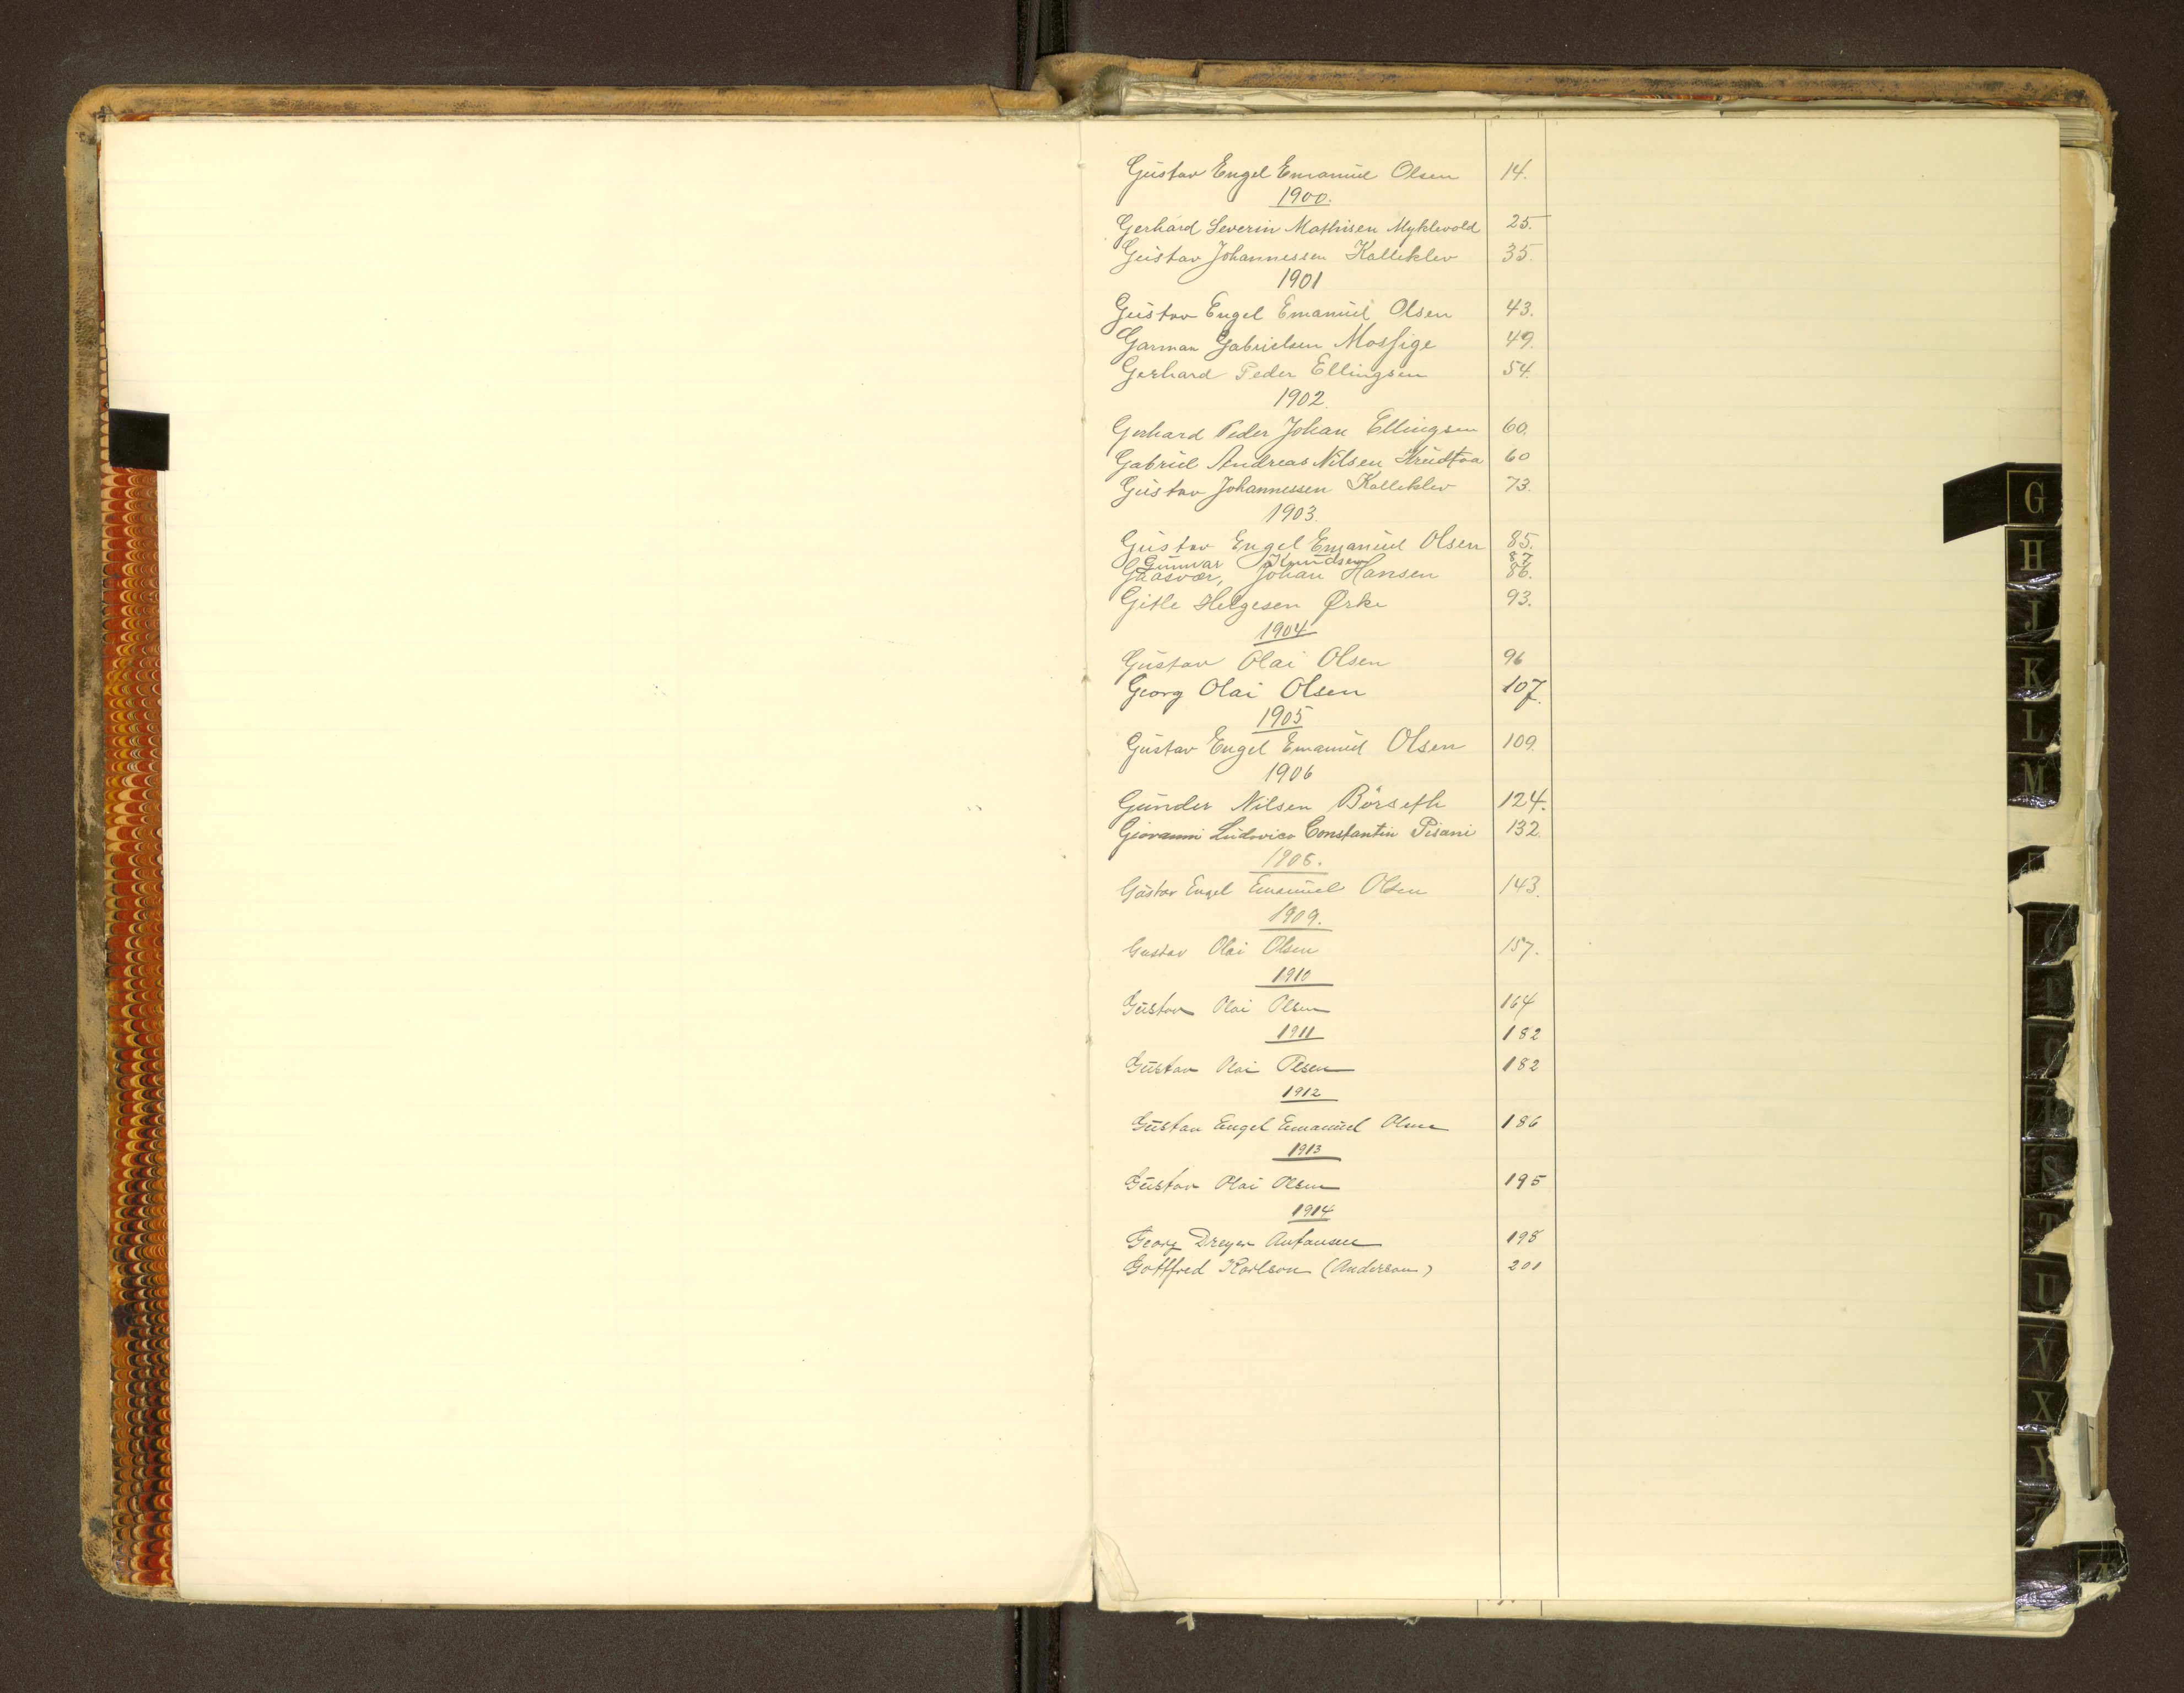 Gustav Engel Emanuel Olsen 14.
1900.
Gerhard Severin Mathisen Myklevold 25.
Gustav Johannessen Kalleklev 35.
1901
Gustav Engel Emanuel Olsen 43.
Garman Gabrielsen Mossige 49.
Gerhard Peder Ellingsen 54.
1902.
Gerhard Peder Johan Ellingsen 60.
Gabriel Andreas Nilsen 60
Gustav Johannessen Kalleklev 73.
1903.
Gustav Engel Emanuel Olsen 85.
Gunnvar Knudsen 87
Gaasvær, Johan Hansen 86.
Gitle Helgesen Ørke 93.
1904
Gustav Olai Olsen 96
Georg Olai Olsen 107.
1905
Gustav Engel Emanuel Olsen 109.
1906
Gunder Nilsen Börseth 124.
Giovanni Ludovico Constantin Pisani 132.
1908.
Gustav Engel Emanuel Olsen 143.
1909.
Gustav Olai Olsen 157.
1910
Gustav Olai Olsen 164
1911 182
Gustav Olai Olsen 182
1912
Gustav Engel Emanuel Olsen 186
1913
Gustav Olai Olsen 195
1914
Georg Dreyer Antonsen 198
Gottfred Karlson (Anderson) 201
G
H
J
K
L
M
S
T
U
V
X
Y